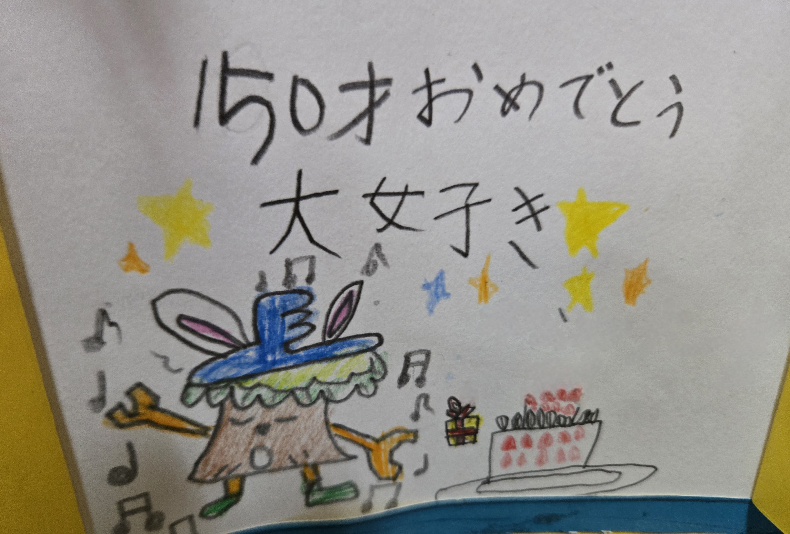 150才おめでとう
大好き